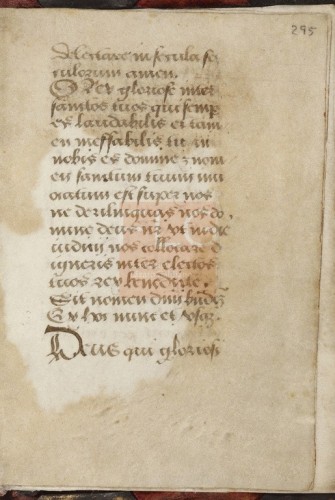 295
delectare in secula se
culorum amen.
O rex gloriose inter
sanctos tuos qui semp
es laudabilis et tam
en ineffabilis tu in
nobis es domine z nom
en sanctum tuum inu
ocatum est super nos
ne derelinquas nos do.
mine deus nr vt in die
iudicij nos collocare d
igneris inter electos
tuos rex benedicte.
Sit nomen dnj
Ex hoc nunc et vsqz.
Deus qui gloriosi